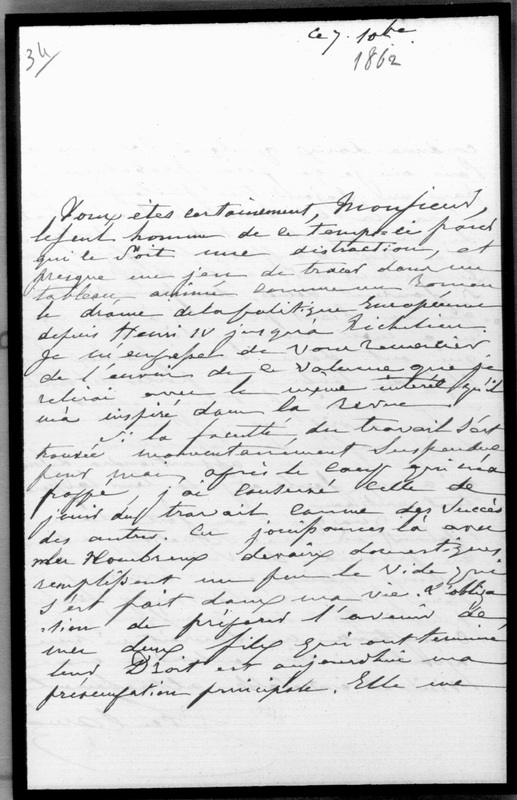 34
ce 7. 10bre
1862
Vous êtes certainement, Monsieur,
le seul homme de ce temps ci pour
qui ce soit une distraction, et
presque un jeu de tracer dans un
tableau animé comme un Roman
le drame de la politique Européenne
depuis Henri IV jusqu'à Richelieu.
Je m'empresse de vous remercier
de l'envoi de ce volume que je
relirai avec le même intérêt qu'il
m'a inspiré dans la revue.
Si la faculté du travail s'est
trouvée momentanément suspendue
pour moi, après le coup qui m'a
frappé, j'ai conservé celle de
jouir du travail comme des succès
des autres. Ces jouissances là avec
mes nombreux devoirs domestiques
remplissent un peu le vide qui
s'est fait dans ma vie. L'obliga
tion de préparer l'avenir de
mes deux fils qui ont terminé
leur Droit est aujourd'hui ma
préoccupation principale. Elle me